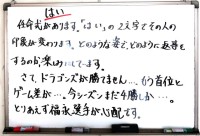 はい
任命式があります。「はい」の2文字でその人の
印象が変わります。どのような姿で、どのように返事を
するのか楽しみにしています。
さて、ドラゴンズが勝てません…。もう首位と
ゲーム差が…。今シーズンまだ4勝しか…。
とりあえず福永選手が心配です。